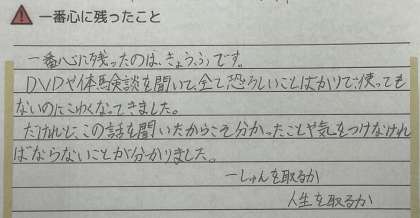 一番心に残ったこと
一番心に残ったのは、きょうふです。
DVDや体験談を聞いて、全て恐ろしいことばかりで、使っても
ないのにこわくなってきました。
だけれど、この話を聞いたからこそ分かったことや気をつけなけれ
ばならないことが分かりました。
一しゅんを取るか
人生を取るか